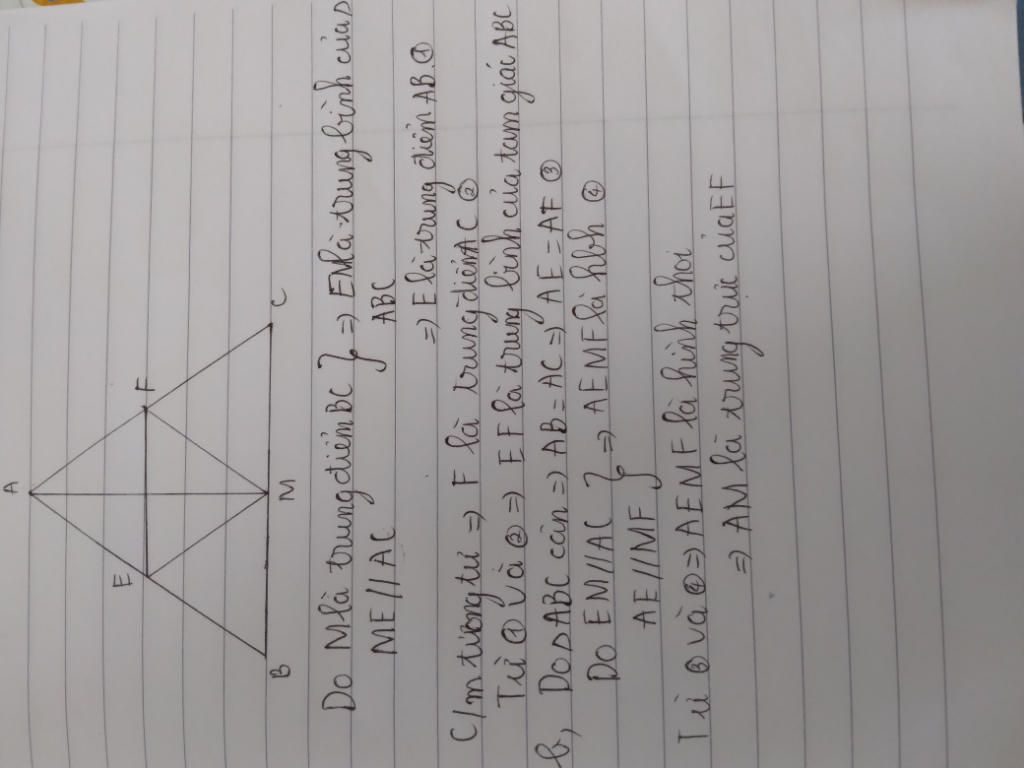 A
E
F
B
M
C
Do M là trung điểm BC } => EM là trung bình của Δ
ME // AC ABC
=> E là trung điểm AB. ①
C/m tương tự => F là trung điểm AC ②
Từ ① và ② => EF là trung bình của tam giác ABC
b, Do Δ ABC cân => AB = AC => AE = AF ③
Do EM // AC } => AEMF là hbh ④
AE // MF
Từ ③ và ④ => AEMF là hình thoi
=> AM là trung trực của EF